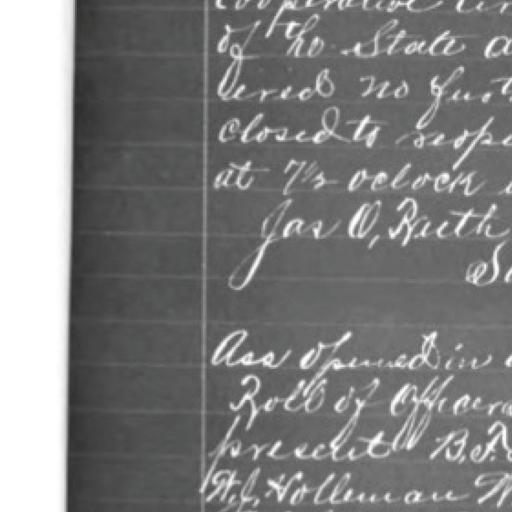 cooperative
of the State a
ered no furt
closed to reope
at 7 1/2 oclock
Jas O, Ruth
Se
Ass opened in
Roll of Officers
present B.F.
H.J. Holleman W